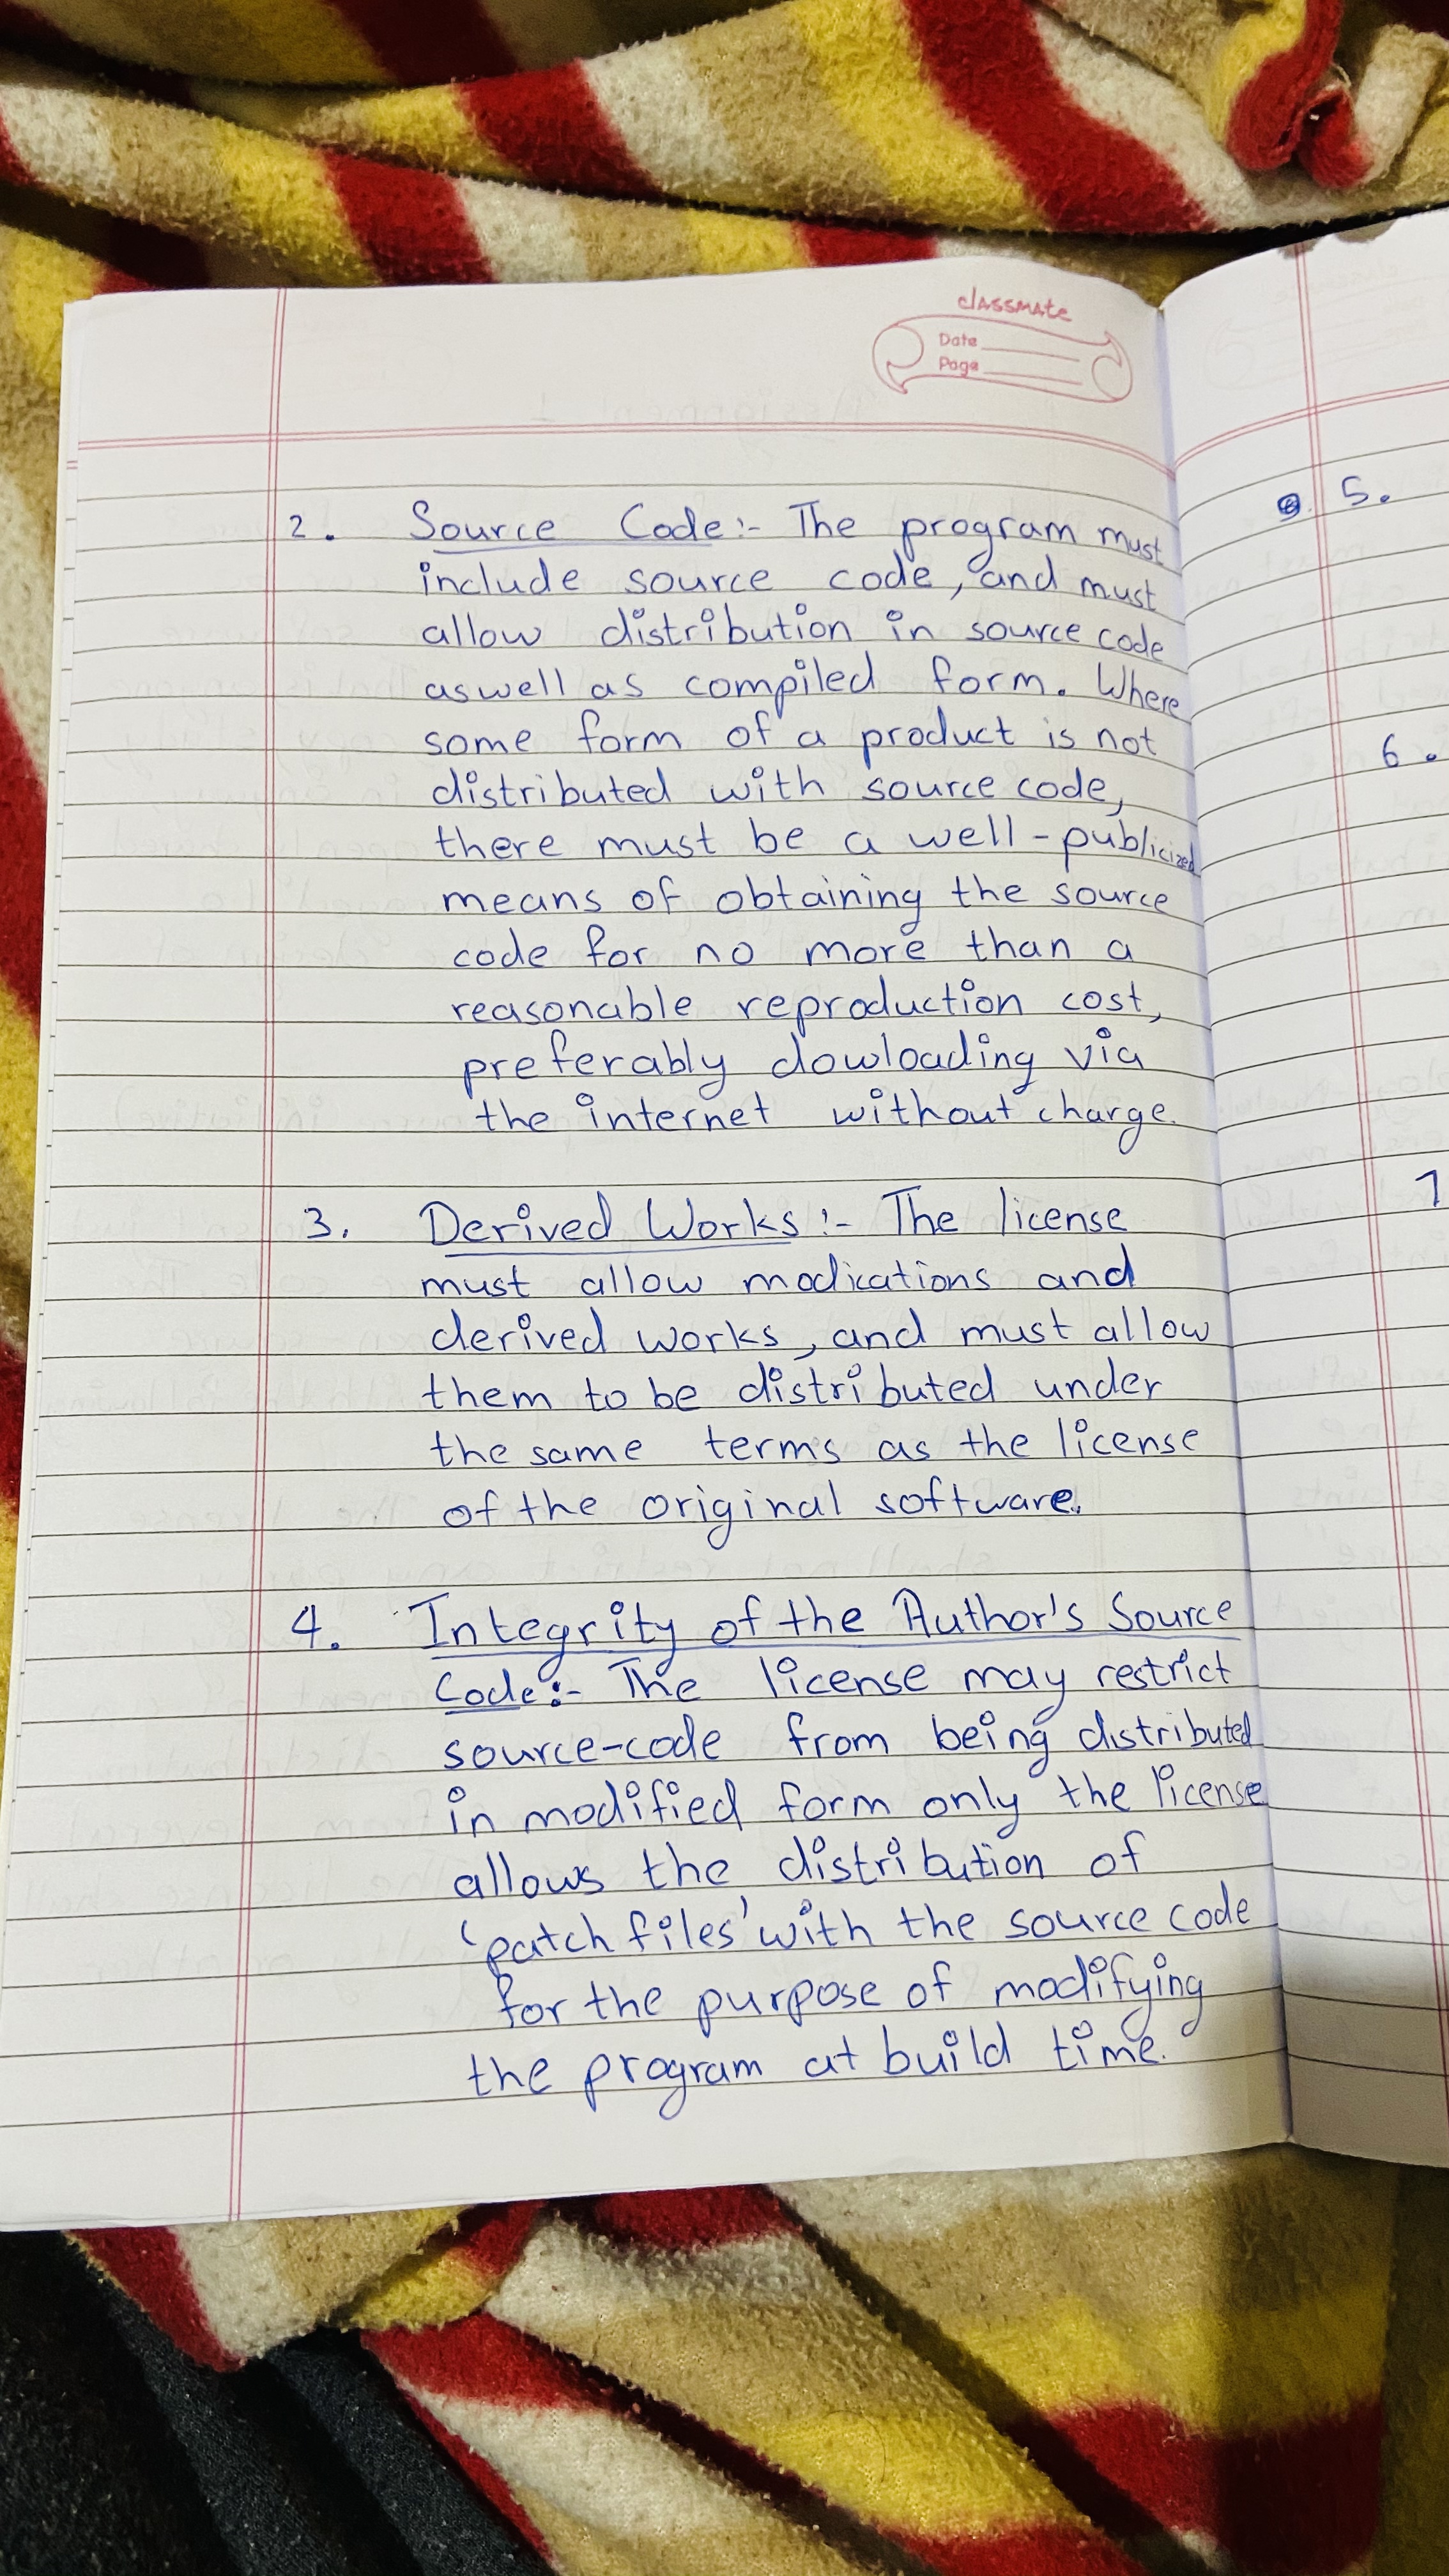 classmate
Date
Page
2. Source Code:- The program must
include source code, and must
allow distribution in source code
aswell as compiled form. Where
some form of a product is not
distributed with source code,
there must be a well-publicized
means of obtaining the source
code for no more than a
reasonable reproduction cost,
preferably dowloading via
the internet without charge.
3. Derived Works:- The license
must allow modications and
derived works, and must allow
them to be distributed under
the same terms as the license
of the original software.
4. Integrity of the Author's Source
Code:- The license may restrict
source-code from being distributed
in modified form only the license
allows the distribution of
'patch files' with the source code
for the purpose of modifying
the program at build time.
5.
6.
7